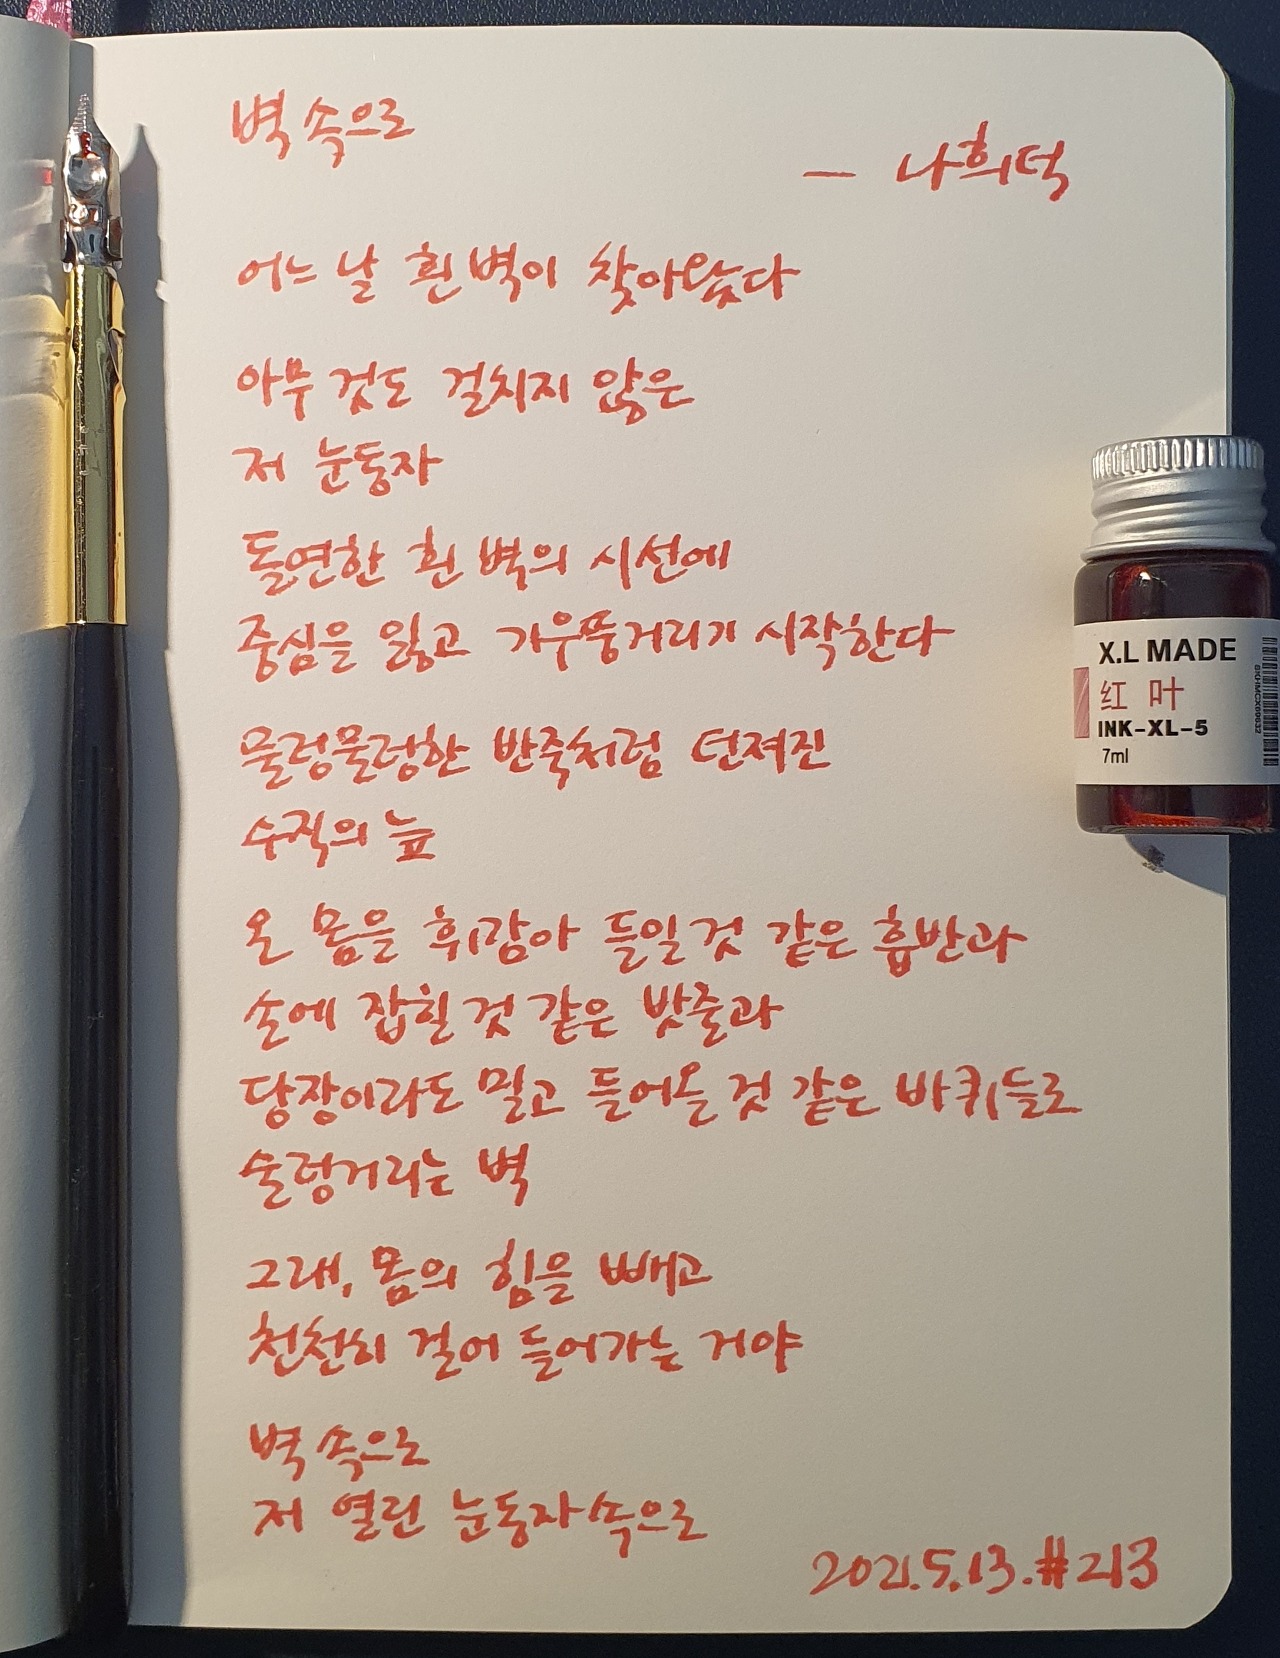 벽 속으로
— 나희덕
어느 날 흰 벽이 찾아왔다
아무 것도 걸치지 않은
저 눈동자
돌연한 흰 벽의 시선에
중심을 잃고 기우뚱거리기 시작한다
물렁물렁한 반죽처럼 던져진
수직의 늪
온 몸을 휘감아 들일 것 같은 흡반과
손에 잡힐 것 같은 밧줄과
당장이라도 밀고 들어올 것 같은 바퀴들로
술렁거리는 벽
그래, 몸의 힘을 빼고
천천히 걸어 들어가는 거야
벽 속으로
저 열린 눈동자 속으로
2021.5.13.#213
X.L MADE
红 叶
INK-XL-5
7ml